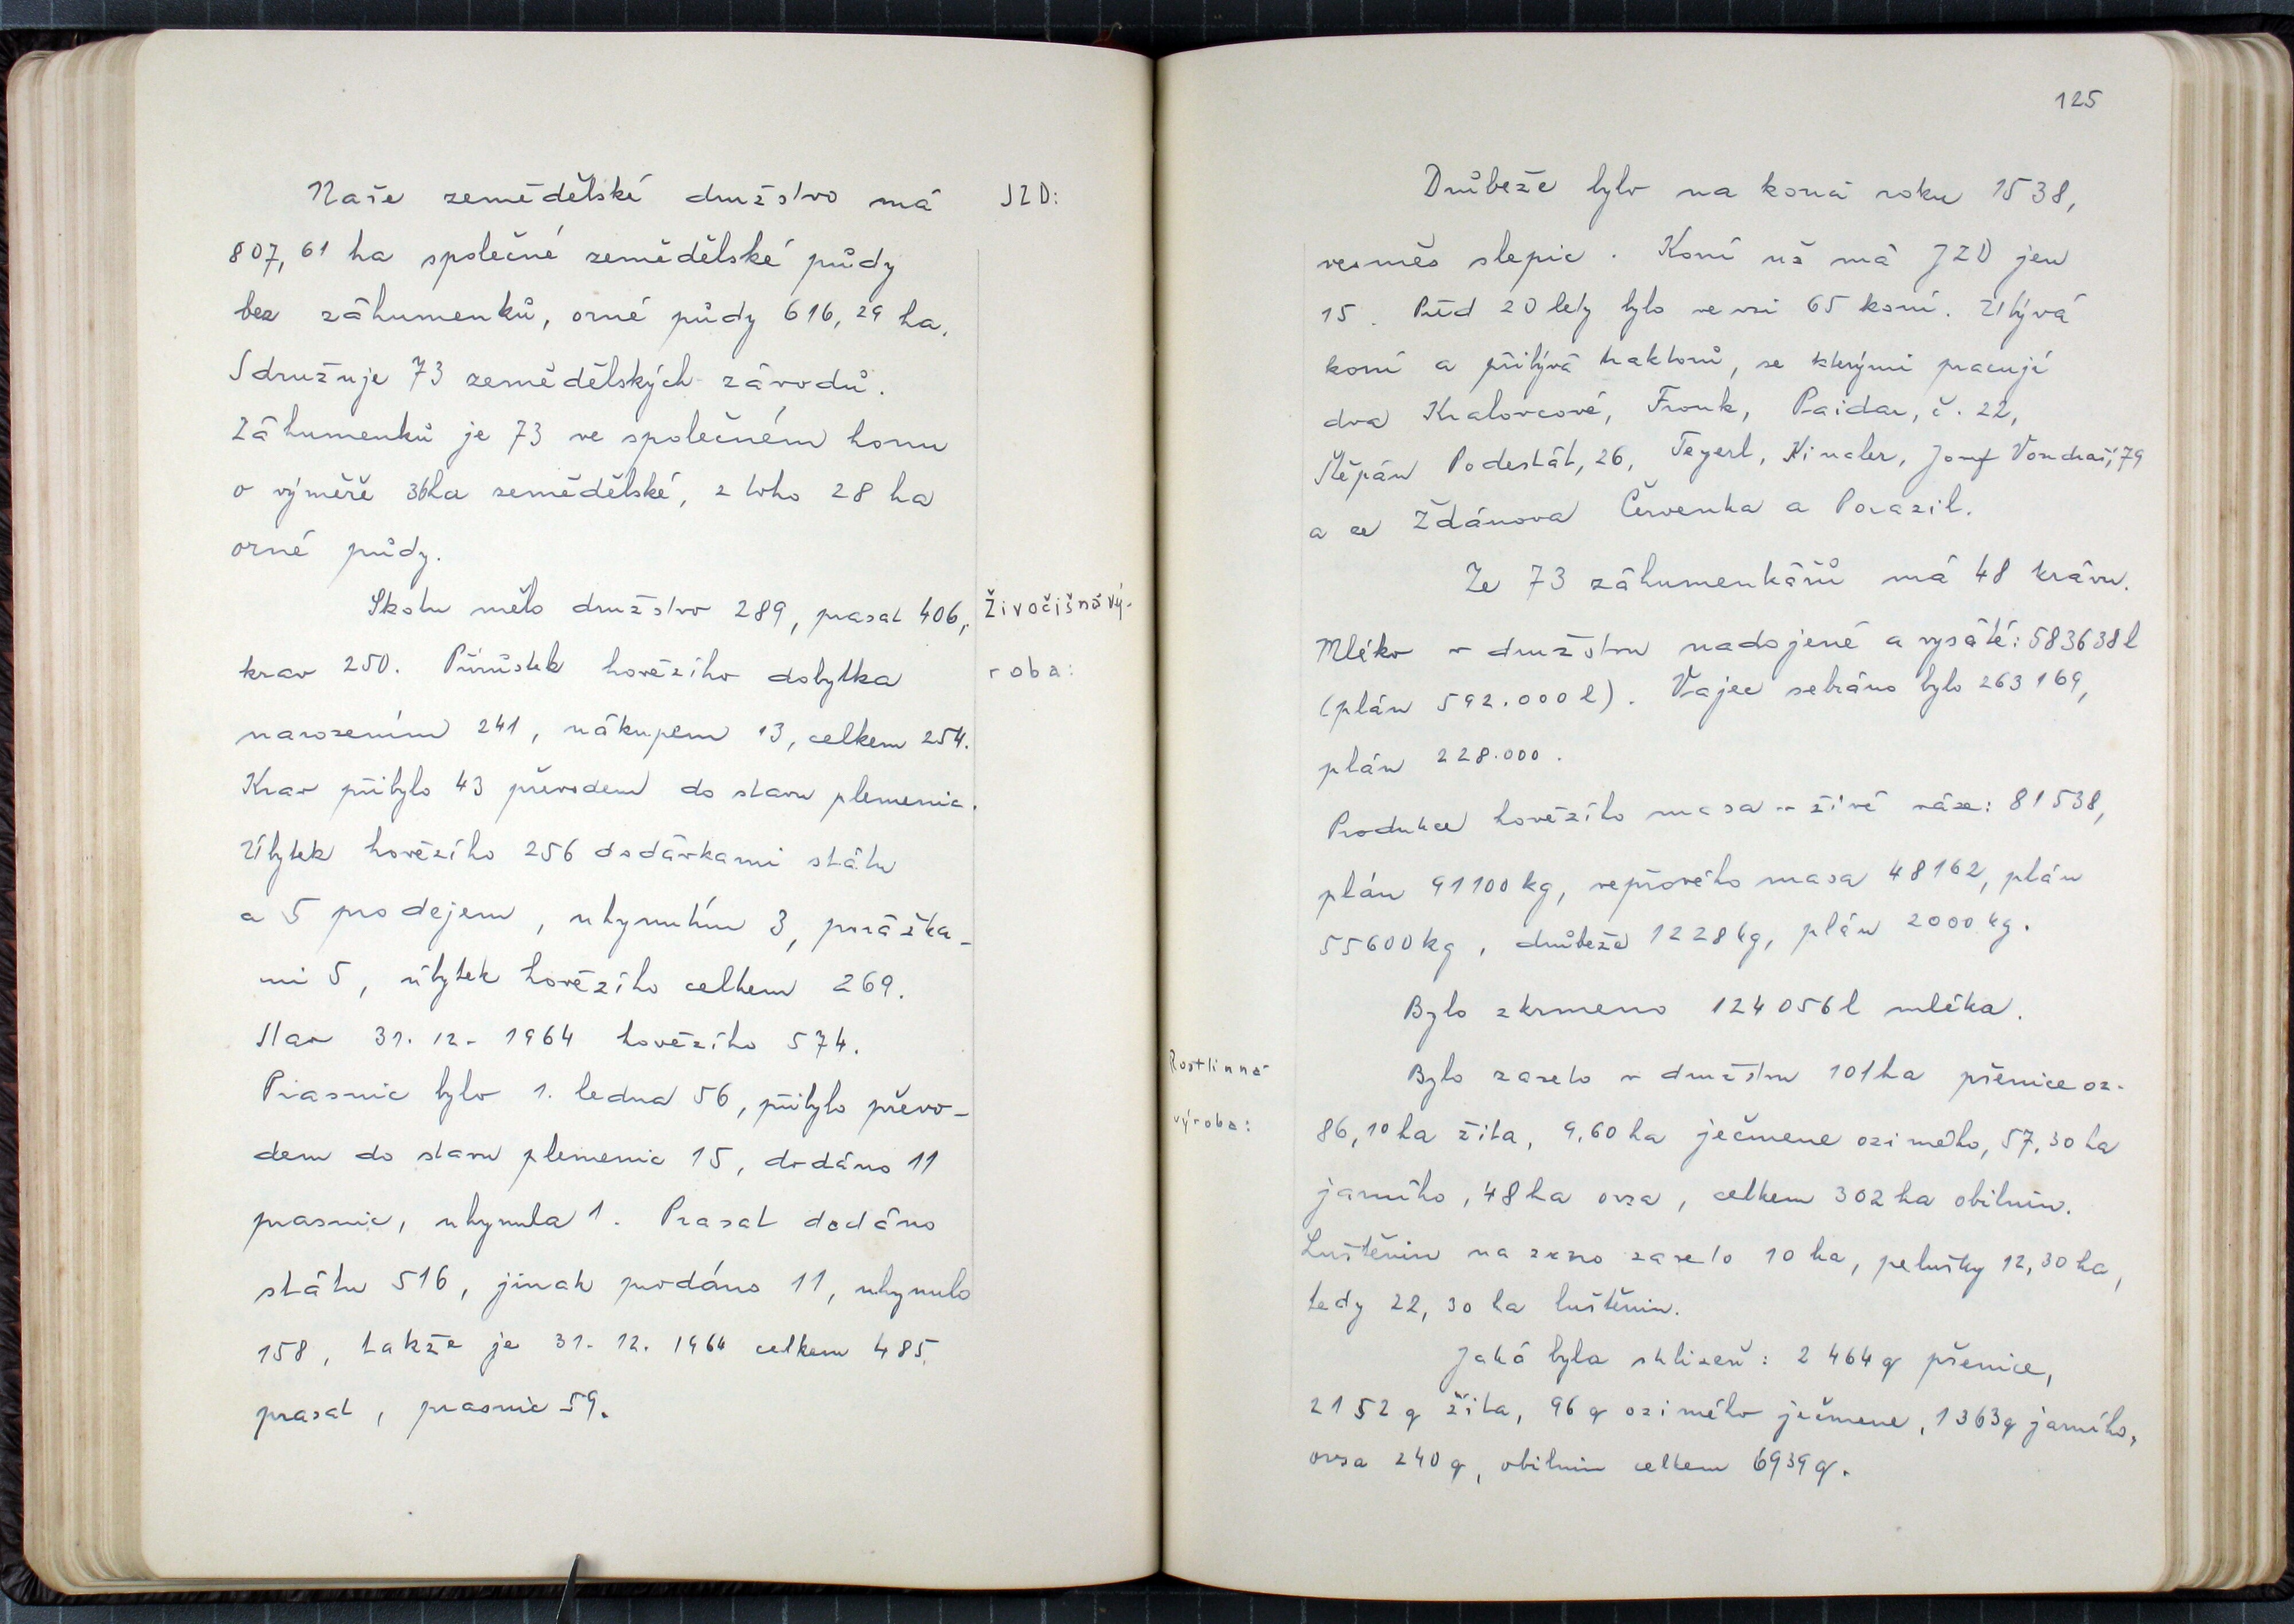 Naše zemědělské družstvo má
JZD:
807,61 ha společné zemědělské půdy
bez záhumenků, orné půdy 616,29 ha.
Sdružuje 73 zemědělských závodů.
Záhumenků je 73 ve společném honu
o výměře 36ha zemědělské, z toho 28 ha
orné půdy.
Skotu mělo družstvo 289, prasat 406,
Živočišná vý-
krav 250. Přírůstek hovězího dobytka
roba:
narozením 241, nákupem 13, celkem 254.
Krav přibylo 43 převodem do stavu plemenic.
Úbytek hovězího 256 dodávkami státu
a 5 prodejem, uhynutím 3, porážka-
mi 5, úbytek hovězího celkem 269.
Stav 31. 12. 1964 hovězího 574.
Prasnic bylo 1. ledna 56, přibylo převo-
dem do stavu plemenic 15, dodáno 11
prasnic, uhynula 1. Prasat dodáno
státu 516, jinak prodáno 11, uhynulo
158, takže je 31. 12. 1964 celkem 485
prasat, prasnic 59.
125
Drůbeže bylo na konci roku 1538,
vesměs slepic. Koní už má JZD jen
15. Před 20 lety bylo ve vsi 65 koní. Ubývá
koní a přibývá traktorů, se kterými pracují
dva Kralovcové, Fronk, Paidar, č. 22,
Štěpán Podestát, 26, Tegerl, Kincler, Josef Vondraš, 79
a ze Ždánova Červenka a Porazil.
Ze 73 záhumenkářů má 48 krávu.
Mléko v družstvu nadojené a vysáté: 583638 l
(plán 592.000 l). Vajec sebráno bylo 263 169,
plán 228.000.
Produkce hovězího masa v živé váze: 81538,
plán 91100 kg, vepřového masa 48162, plán
55600 kg, drůbeže 1228 kg, plán 2000 kg.
Bylo zkrmeno 124 056 l mléka.
Rostlinná
výroba:
Bylo zaseto v družstvu 101 ha pšenice oz.
86,10 ha žita, 9,60 ha ječmene ozimého, 57,30 ha
jarního, 48 ha ovsa, celkem 302 ha obilnin.
Luštěnin na zrno zaseto 10 ha, pelušky 12,30 ha,
tedy 22,30 ha luštěnin.
Jaká byla sklizeň: 2 464 q pšenice,
2152 q žita, 96 q ozimého ječmene, 1363 q jarního,
ovsa 240 q, obilnin celkem 6939 q.